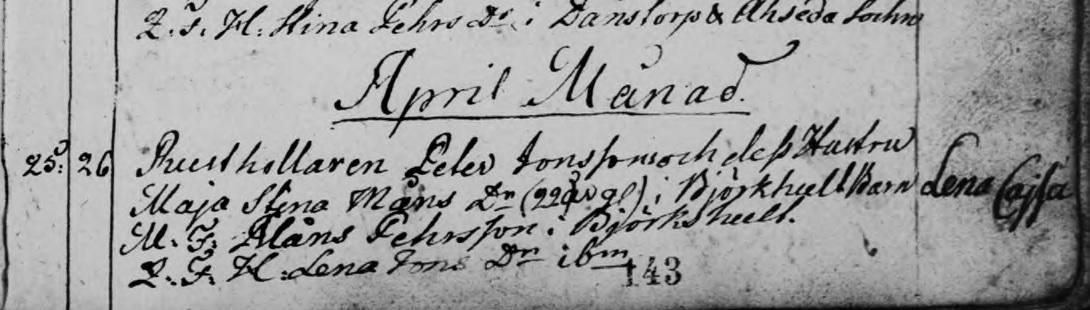 Q. F. H: Stina Pehrs Dr i Danstorp & Ahseda Sochn
April Månad.
25: 26 Rusthållaren Peter Jonsson och deß Hustru
Maja Stina Måns Dr (22 år gl) i Björkhult Barn Lena Cajsa
M. F: Måns Pehrsson i Björkshult.
Q. F. H: Lena Jons Dr ibm
143